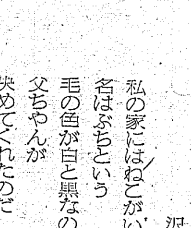 私の家にはねこがい
名はぶちという
毛の色が白と黒なの
父ちゃんが
決めてくれたのだ